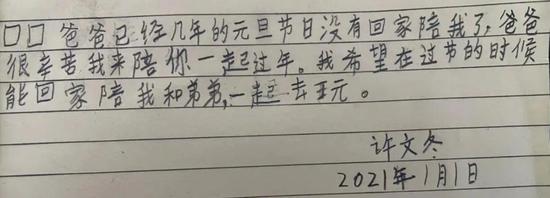 口口爸爸已经几年的元旦节日没有回家陪我了，爸爸
很辛苦我来陪你一起过年。我希望在过节的时候
能回家陪我和弟弟，一起去玩。
许文冬
2021年1月1日